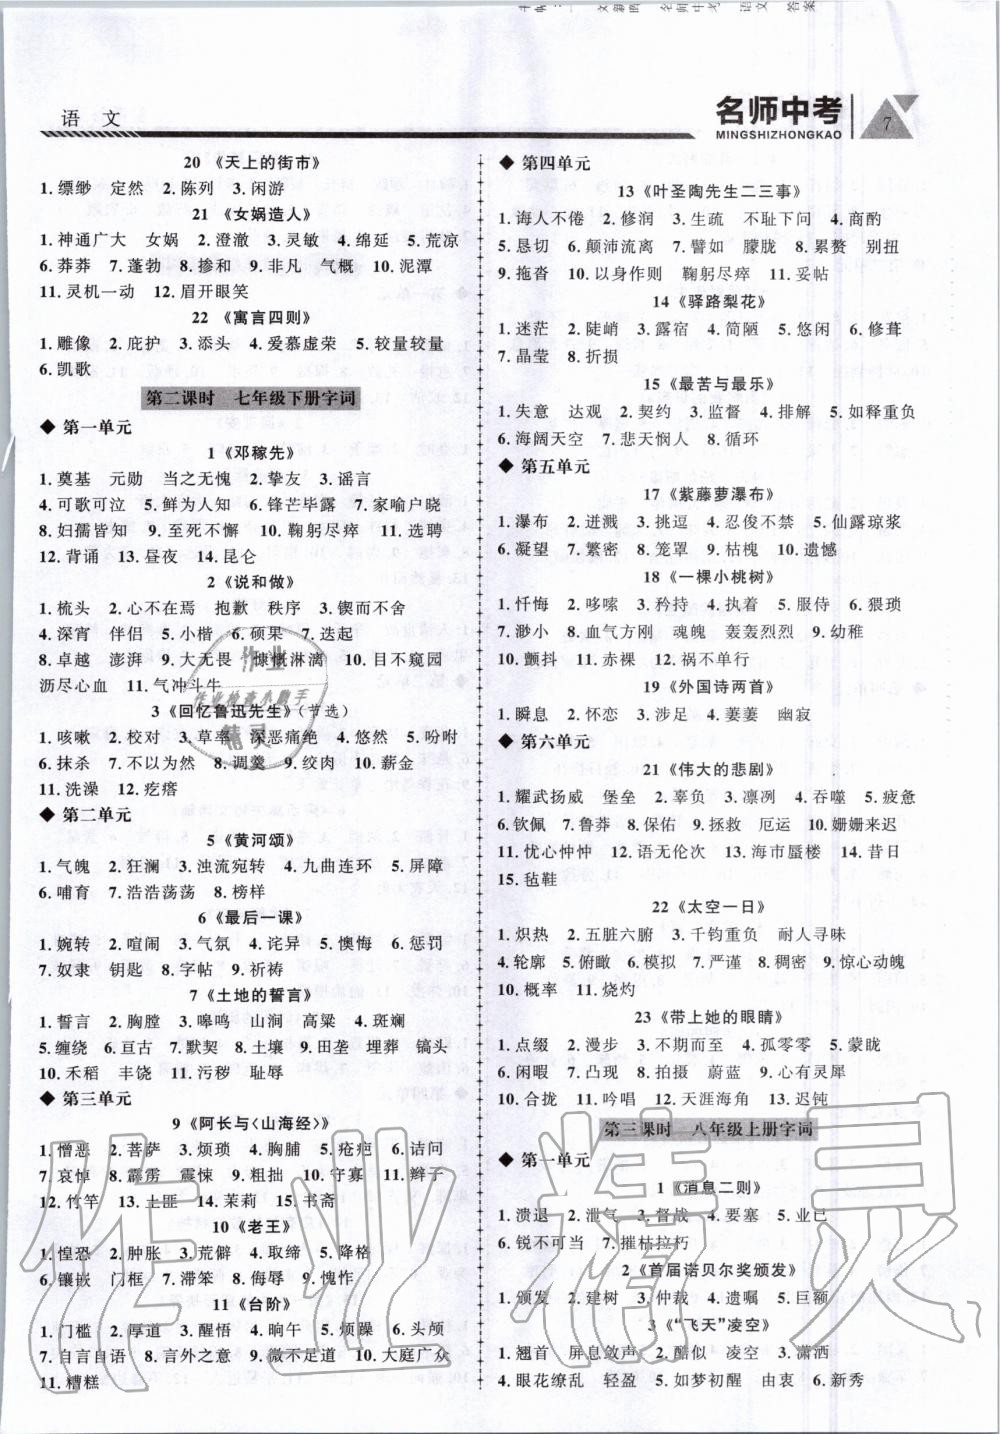 语 文
名师中考
MINGSHIZHONGKAO
7
20 《天上的街市》
1. 缥缈 定然 2. 陈列 3. 闲游
21 《女娲造人》
1. 神通广大 女娲 2. 澄澈 3. 灵敏 4. 绵延 5. 荒凉
6. 莽莽 7. 蓬勃 8. 掺和 9. 非凡 气概 10. 泥潭
11. 灵机一动 12. 眉开眼笑
22 《寓言四则》
1. 雕像 2. 庇护 3. 添头 4. 爱慕虚荣 5. 较量较量
6. 凯歌
第二课时 七年级下册字词
◆ 第一单元
1《邓稼先》
1. 奠基 元勋 当之无愧 2. 挚友 3. 谣言
4. 可歌可泣 5. 鲜为人知 6. 锋芒毕露 7. 家喻户晓
8. 妇孺皆知 9. 至死不懈 10. 鞠躬尽瘁 11. 选聘
12. 背诵 13. 昼夜 14. 昆仑
2《说和做》
1. 梳头 2. 心不在焉 抱歉 秩序 3. 锲而不舍
4. 深宵 伴侣 5. 小楷 6. 硕果 7. 迭起
8. 卓越 澎湃 9. 大无畏 慷慨淋漓 10. 目不窥园
沥尽心血 11. 气冲斗牛
3《回忆鲁迅先生》(节选)
1. 咳嗽 2. 校对 3. 草率 深恶痛绝 4. 悠然 5. 吩咐
6. 抹杀 7. 不以为然 8. 调羹 9. 绞肉 10. 薪金
11. 洗澡 12. 疙瘩
◆ 第二单元
5《黄河颂》
1. 气魄 2. 狂澜 3. 浊流宛转 4. 九曲连环 5. 屏障
6. 哺育 7. 浩浩荡荡 8. 榜样
6《最后一课》
1. 婉转 2. 喧闹 3. 气氛 4. 诧异 5. 懊悔 6. 惩罚
7. 奴隶 钥匙 8. 字帖 9. 祈祷
7《土地的誓言》
1. 誓言 2. 胸膛 3. 嗥鸣 山涧 高粱 4. 斑斓
5. 缠绕 6. 亘古 7. 默契 8. 土壤 9. 田垄 埋葬 镐头
10. 禾稻 丰饶 11. 污秽 耻辱
◆ 第三单元
9《阿长与〈山海经〉》
1. 憎恶 2. 菩萨 3. 烦琐 4. 胸脯 5. 疮疤 6. 诘问
7. 哀悼 8. 霹雳 震悚 9. 粗拙 10. 守寡 11. 辫子
12. 竹竿 13. 土匪 14. 茉莉 15. 书斋
10《老王》
1. 惶恐 2. 肿胀 3. 荒僻 4. 取缔 5. 降格
6. 镶嵌 门框 7. 滞笨 8. 侮辱 9. 愧怍
11《台阶》
1. 门槛 2. 厚道 3. 醒悟 4. 晌午 5. 烦躁 6. 头颅
7. 自言自语 8. 言外之意 9. 微不足道 10. 大庭广众
11. 糟糕
◆ 第四单元
13《叶圣陶先生二三事》
1. 诲人不倦 2. 修润 3. 生疏 不耻下问 4. 商酌
5. 恳切 6. 颠沛流离 7. 譬如 朦胧 8. 累赘 别扭
9. 拖沓 10. 以身作则 鞠躬尽瘁 11. 妥帖
14《驿路梨花》
1. 迷茫 2. 陡峭 3. 露宿 4. 简陋 5. 悠闲 6. 修葺
7. 晶莹 8. 折损
15《最苦与最乐》
1. 失意 达观 2. 契约 3. 监督 4. 排解 5. 如释重负
6. 海阔天空 7. 悲天悯人 8. 循环
◆ 第五单元
17《紫藤萝瀑布》
1. 瀑布 2. 迸溅 3. 挑逗 4. 忍俊不禁 5. 仙露琼浆
6. 凝望 7. 繁密 8. 笼罩 9. 枯槐 10. 遗憾
18《一棵小桃树》
1. 忏悔 2. 哆嗦 3. 矜持 4. 执着 5. 服侍 6. 猥琐
7. 渺小 8. 血气方刚 魂魄 轰轰烈烈 9. 幼稚
10. 颤抖 11. 赤裸 12. 祸不单行
19《外国诗两首》
1. 瞬息 2. 怀恋 3. 涉足 4. 萋萋 幽寂
◆ 第六单元
21《伟大的悲剧》
1. 耀武扬威 堡垒 2. 辜负 3. 凛冽 4. 吞噬 5. 疲惫
6. 钦佩 7. 鲁莽 8. 保佑 9. 拯救 厄运 10. 姗姗来迟
11. 忧心忡忡 12. 语无伦次 13. 海市蜃楼 14. 昔日
15. 毡鞋
22《太空一日》
1. 炽热 2. 五脏六腑 3. 千钧重负 耐人寻味
4. 轮廓 5. 俯瞰 6. 模拟 7. 严谨 8. 稠密 9. 惊心动魄
10. 概率 11. 烧灼
23《带上她的眼睛》
1. 点缀 2. 漫步 3. 不期而至 4. 孤零零 5. 蒙眬
6. 闲暇 7. 凸现 8. 拍摄 蔚蓝 9. 心有灵犀
10. 合拢 11. 吟唱 12. 天涯海角 13. 迟钝
第三课时 八年级上册字词
◆ 第一单元
1《消息二则》
1. 溃退 2. 泄气 3. 督战 4. 要塞 5. 业已
6. 锐不可当 7. 摧枯拉朽
2《首届诺贝尔奖颁发》
1. 颁发 2. 建树 3. 仲裁 4. 遗嘱 5. 巨额
3《“飞天”凌空》
1. 翘首 屏息敛声 2. 酷似 凌空 3. 潇洒
4. 眼花缭乱 轻盈 5. 如梦初醒 由衷 6. 新秀
作业
作业检查小助手
精灵
作业精灵